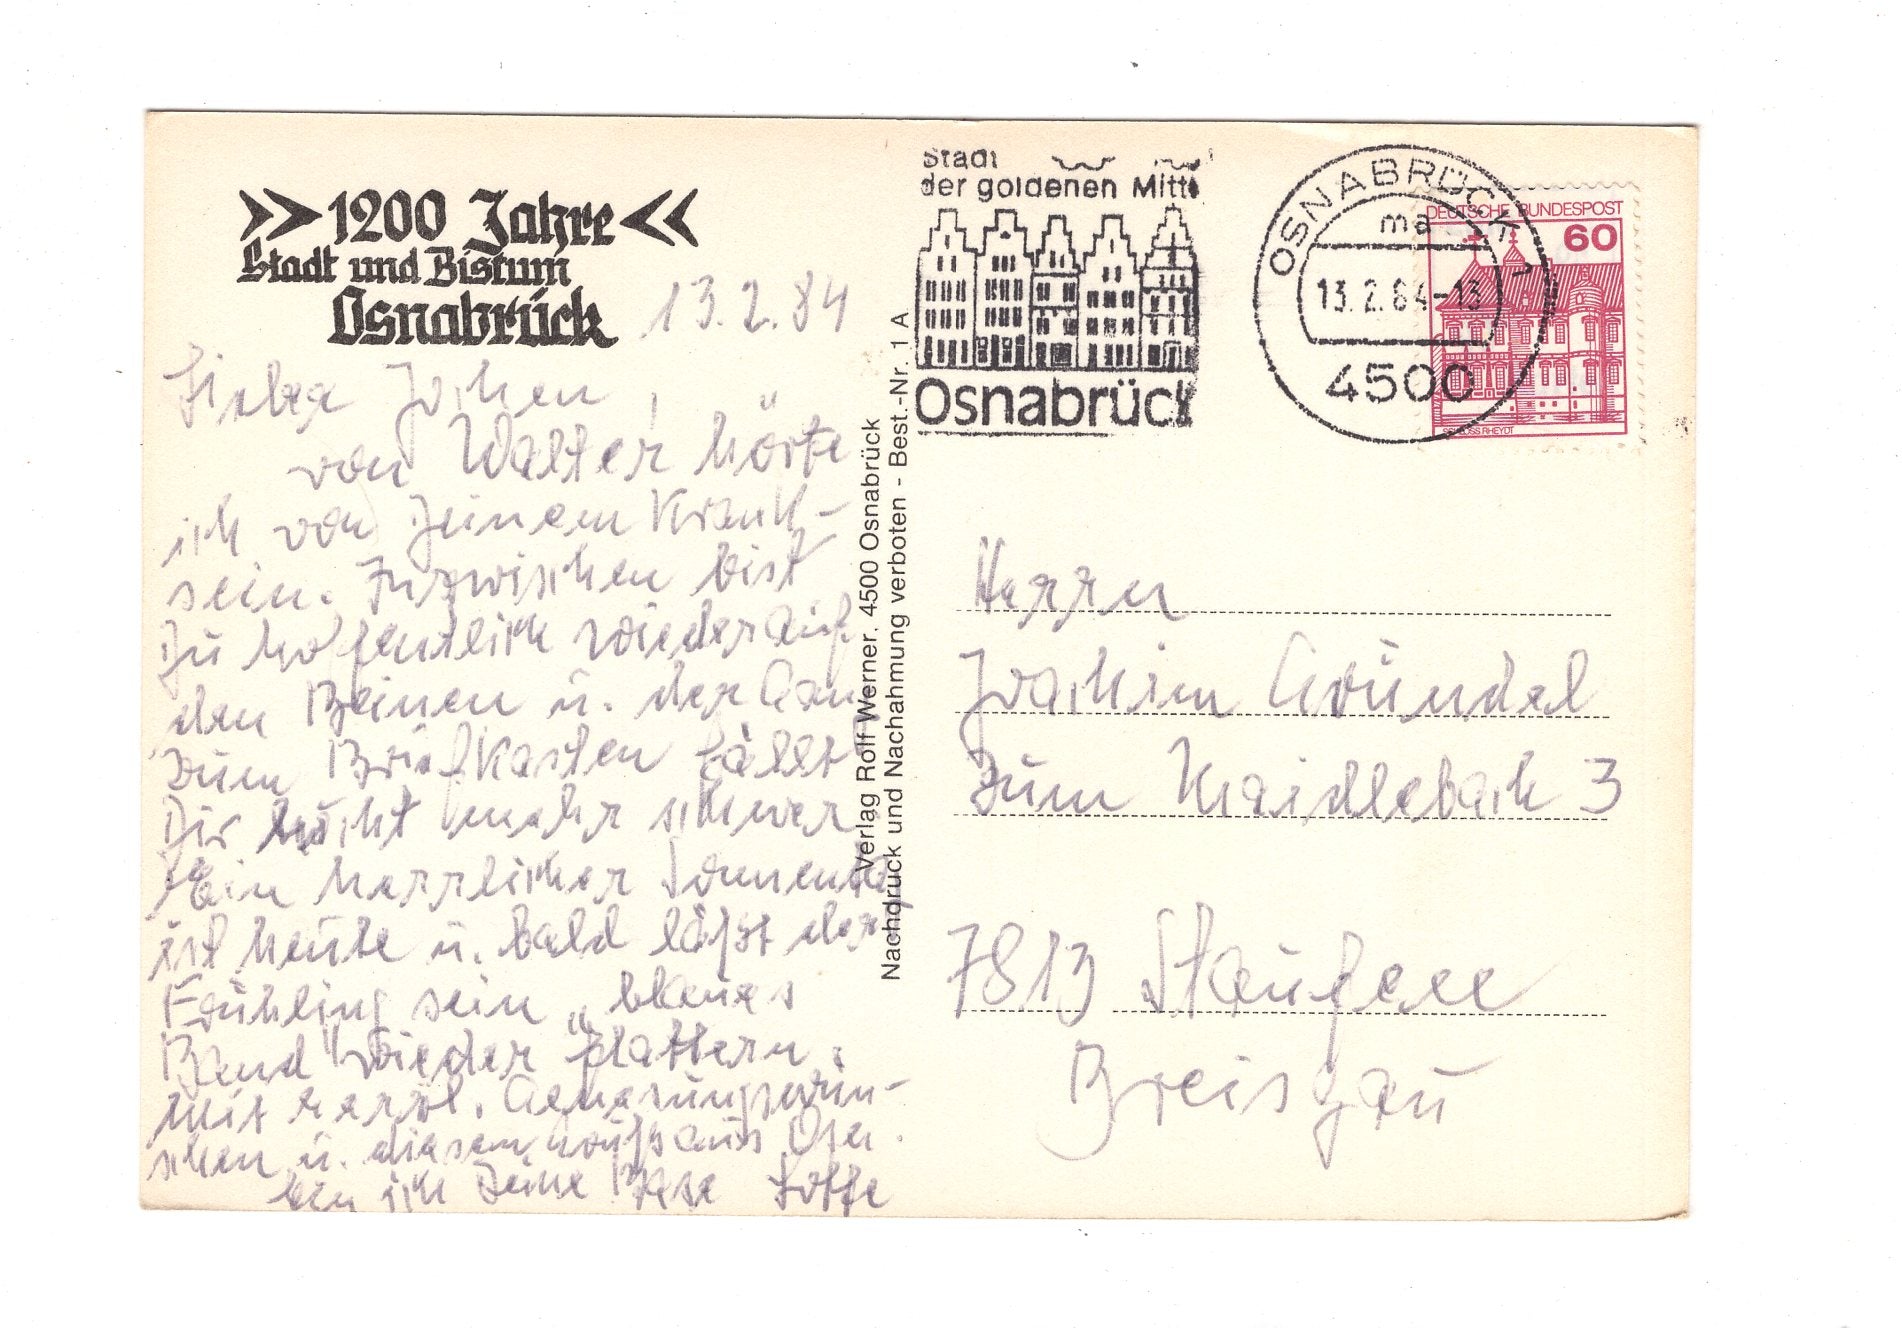 >> 1200 Jahre <<
Stadt und Bistum
Osnabrück
13.2.84
Lieber Jochen,
von Walter hörte
ich von Deinem Krank-
sein. Inzwischen bist
Du hoffentlich wieder auf
den Beinen u. der Gang
zum Briefkasten fällt
Dir nicht mehr schwer.
Ein herrlicher Sonnentag
ist heute u. bald läßt der
Frühling sein „blaues
Band" wieder flattern.
Mit herzl. Genesungswün-
schen u. diesem Gruß aus Osn.
bin ich Deine Base Lotte
Verlag Rolf Werner, 4500 Osnabrück
Nachdruck und Nachahmung verboten - Best.-Nr. 1 A
Stadt
der goldenen Mitte
Osnabrück
OSNABRÜCK 1
ma
13.2.84-13
4500
DEUTSCHE BUNDESPOST
60
SCHLOSS RHEYDT
Herrn
Joachim Gründel
Zum Maidlebach 3
7813 Staufen
Breisgau